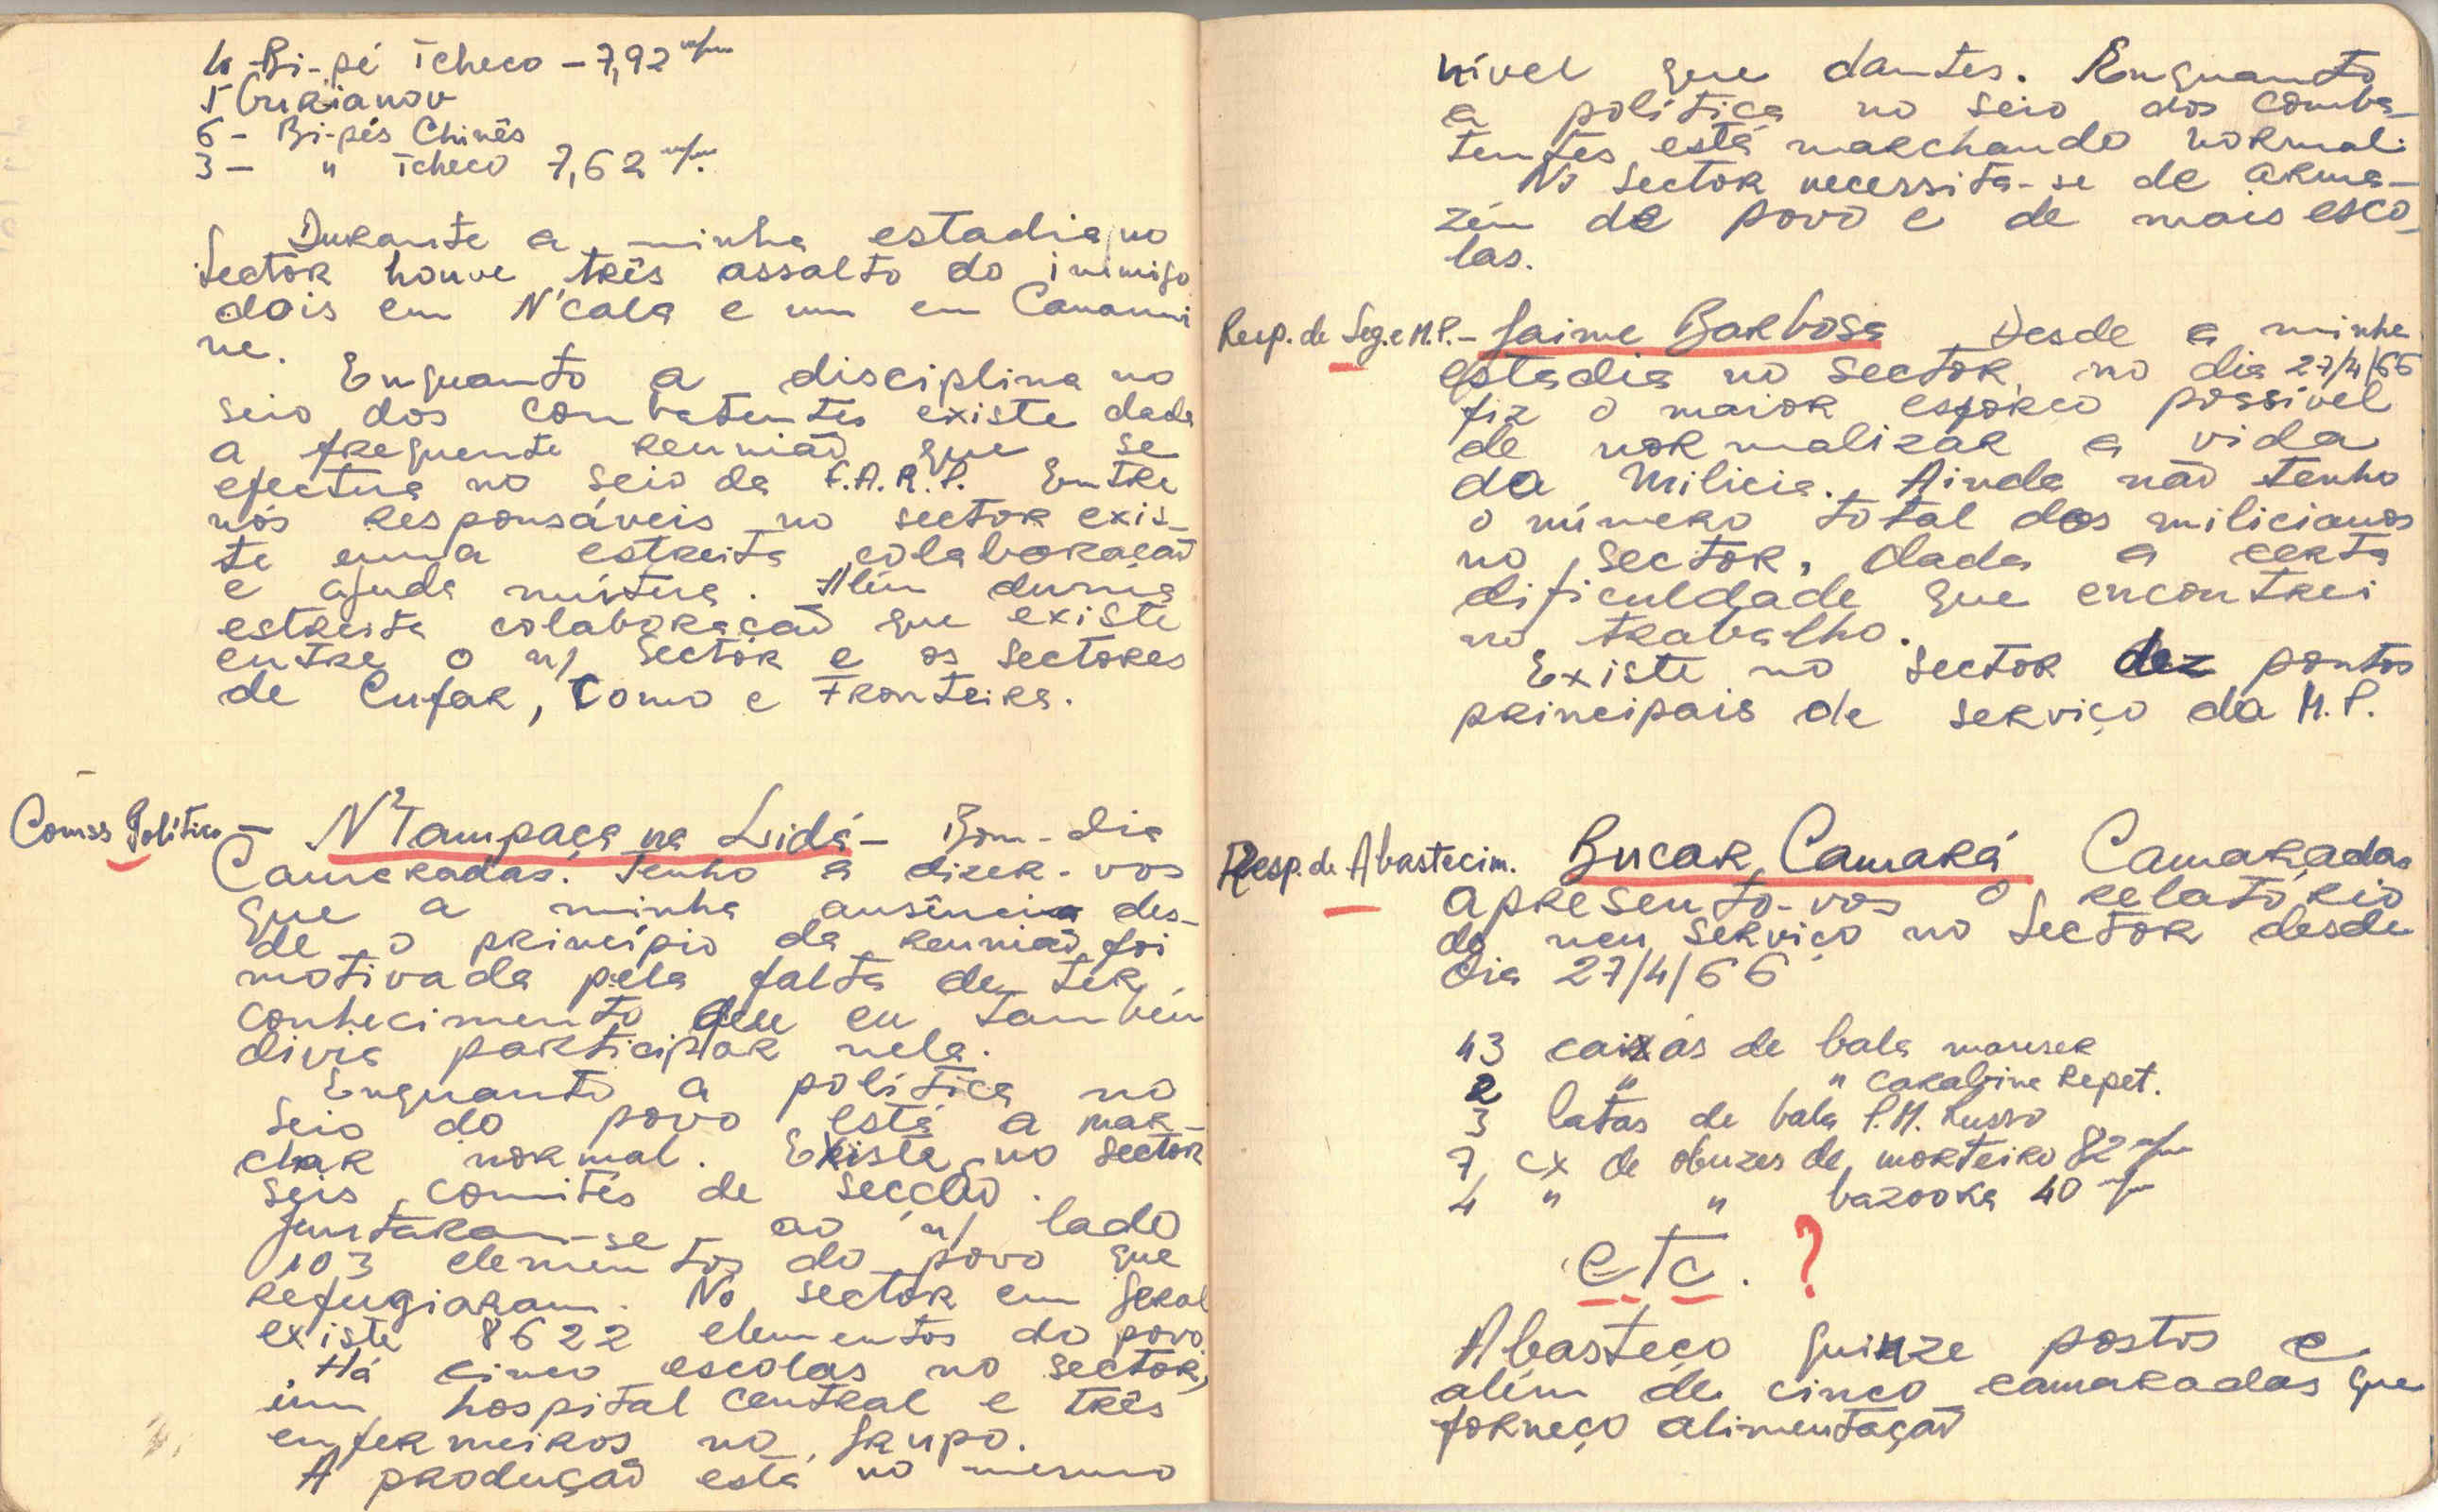 4 - Bi-pé Tcheco - 7,92 m/m
5 Gurianov
6 - Bi-pés Chinês
3 - " Tcheco 7,62 m/m.
Durante a minha estadia no
Sector houve três assalto do inimigo
dois em N'cala e um em Canami
ne.
Enquanto a disciplina no
seio dos combatentes existe dada
a frequente reunião que se
efectua no seio da F.A.R.P. Entre
nós responsáveis no sector exis-
te uma estreita colaboração
e ajuda mútua. Além duma
estreita colaboração que existe
entre o n/ Sector e os Sectores
de Cufar, Como e Fronteira.
Comss Político - N'Tampaça na Lidá - Bom-dia
Camaradas. Tenho a dizer-vos
que a minha ausência des-
de o princípio da reunião foi
motivada pela falta de ter
conhecimento que eu também
divia participar nela.
Enquanto a política no
seio do povo está a mar-
char normal. Existe no Sector
seis comités de secção.
Juntaram-se ao n/ lado
103 elementos do povo que
refugiaram. No sector em geral
existe 8622 elementos do povo.
Há cinco escolas no sector,
um hospital central e três
enfermeiros no grupo.
A produção está no mesmo
nível que dantes. Enquanto
a política no seio dos comba-
tentes está marchando normal.
No Sector necessita-se de arma-
zém de povo e de mais esco-
las.
Resp. de Seg. e M.P. - Jaime Barbosa Desde a minha
estadia no Sector, no dia 27/4/66
fiz o maior esforço possível
de normalizar a vida
da Milicia. Ainda não tenho
o número total dos milicianos
no Sector, dada a certa
dificuldade que encontrei
no trabalho.
Existe no Sector dez pontos
principais de serviço da M.P.
Resp. de Abastecim. Bucar Camará Camaradas
apresento-vos o relatório
do meu serviço no Sector desde
dia 27/4/66
43 caixas de bala mauser
2 " " carabina Repet.
3 latas de bala P.M. Russo
7 cx de obuzes de morteiro 82 m/m
4 " " bazooka 40 m/m
etc. ?
Abasteço quinze postos e
além de cinco camaradas que
forneço alimentação